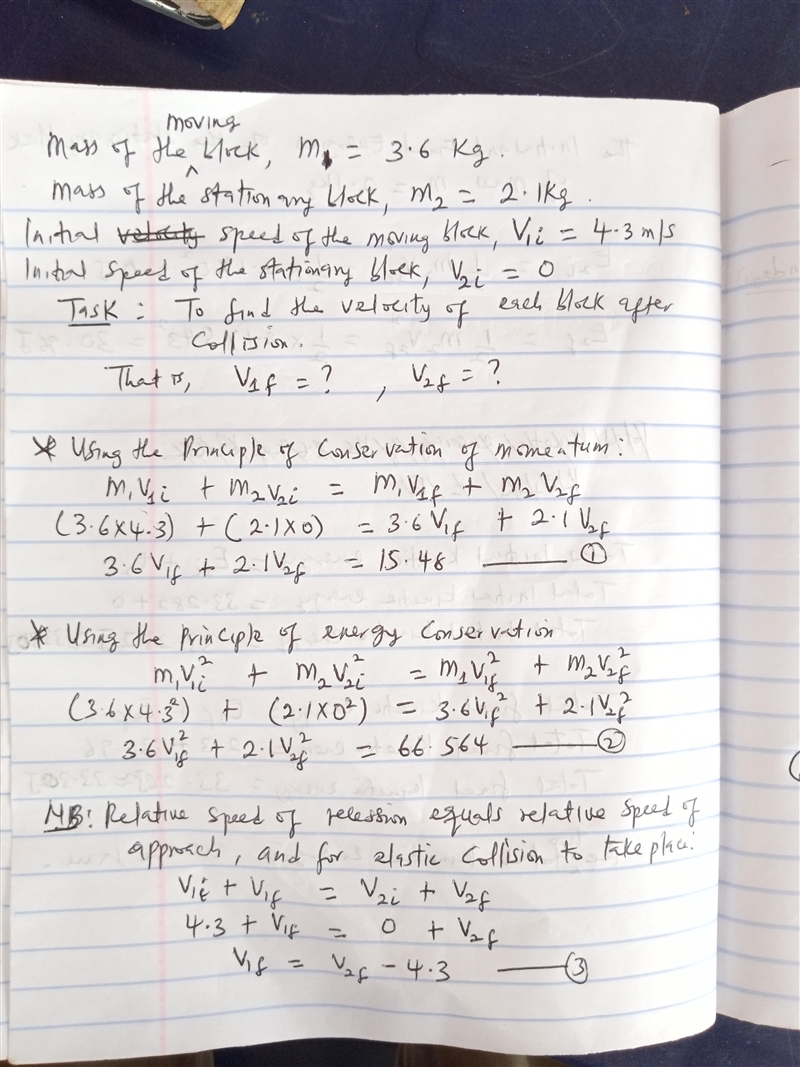 moving
Mass of the ^ block, m₁ = 3.6 Kg.
Mass of the stationary block, m₂ = 2.1kg.
Initial velocity speed of the moving block, V₁ᵢ = 4.3 m/s
Initial speed of the stationary block, V₂ᵢ = 0
Task : To find the velocity of each block after
Collision.
That is, V1f = ? , V₂f = ?
* Using the Principle of Conservation of momentum:
m₁V1i + m₂V₂i = m₁V1f + m₂V₂f
(3.6×4.3) + (2.1×0) = 3.6V1f + 2.1V₂f
3.6V1f + 2.1V₂f = 15.48 —— ①
* Using the principle of energy Conservation
m₁V₁ᵢ² + m₂V₂ᵢ² = m₁V1f² + m₂V₂f²
(3.6×4.3²) + (2.1×0²) = 3.6V1f² + 2.1V₂f²
3.6V1f² + 2.1V₂f² = 66.564 —— ②
NB: Relative speed of recession equals relative speed of
approach, and for elastic Collision to take place:
V1i + V1f = V₂i + V₂f
4.3 + V1f = 0 + V₂f
V1f = V₂f − 4.3 —— ③